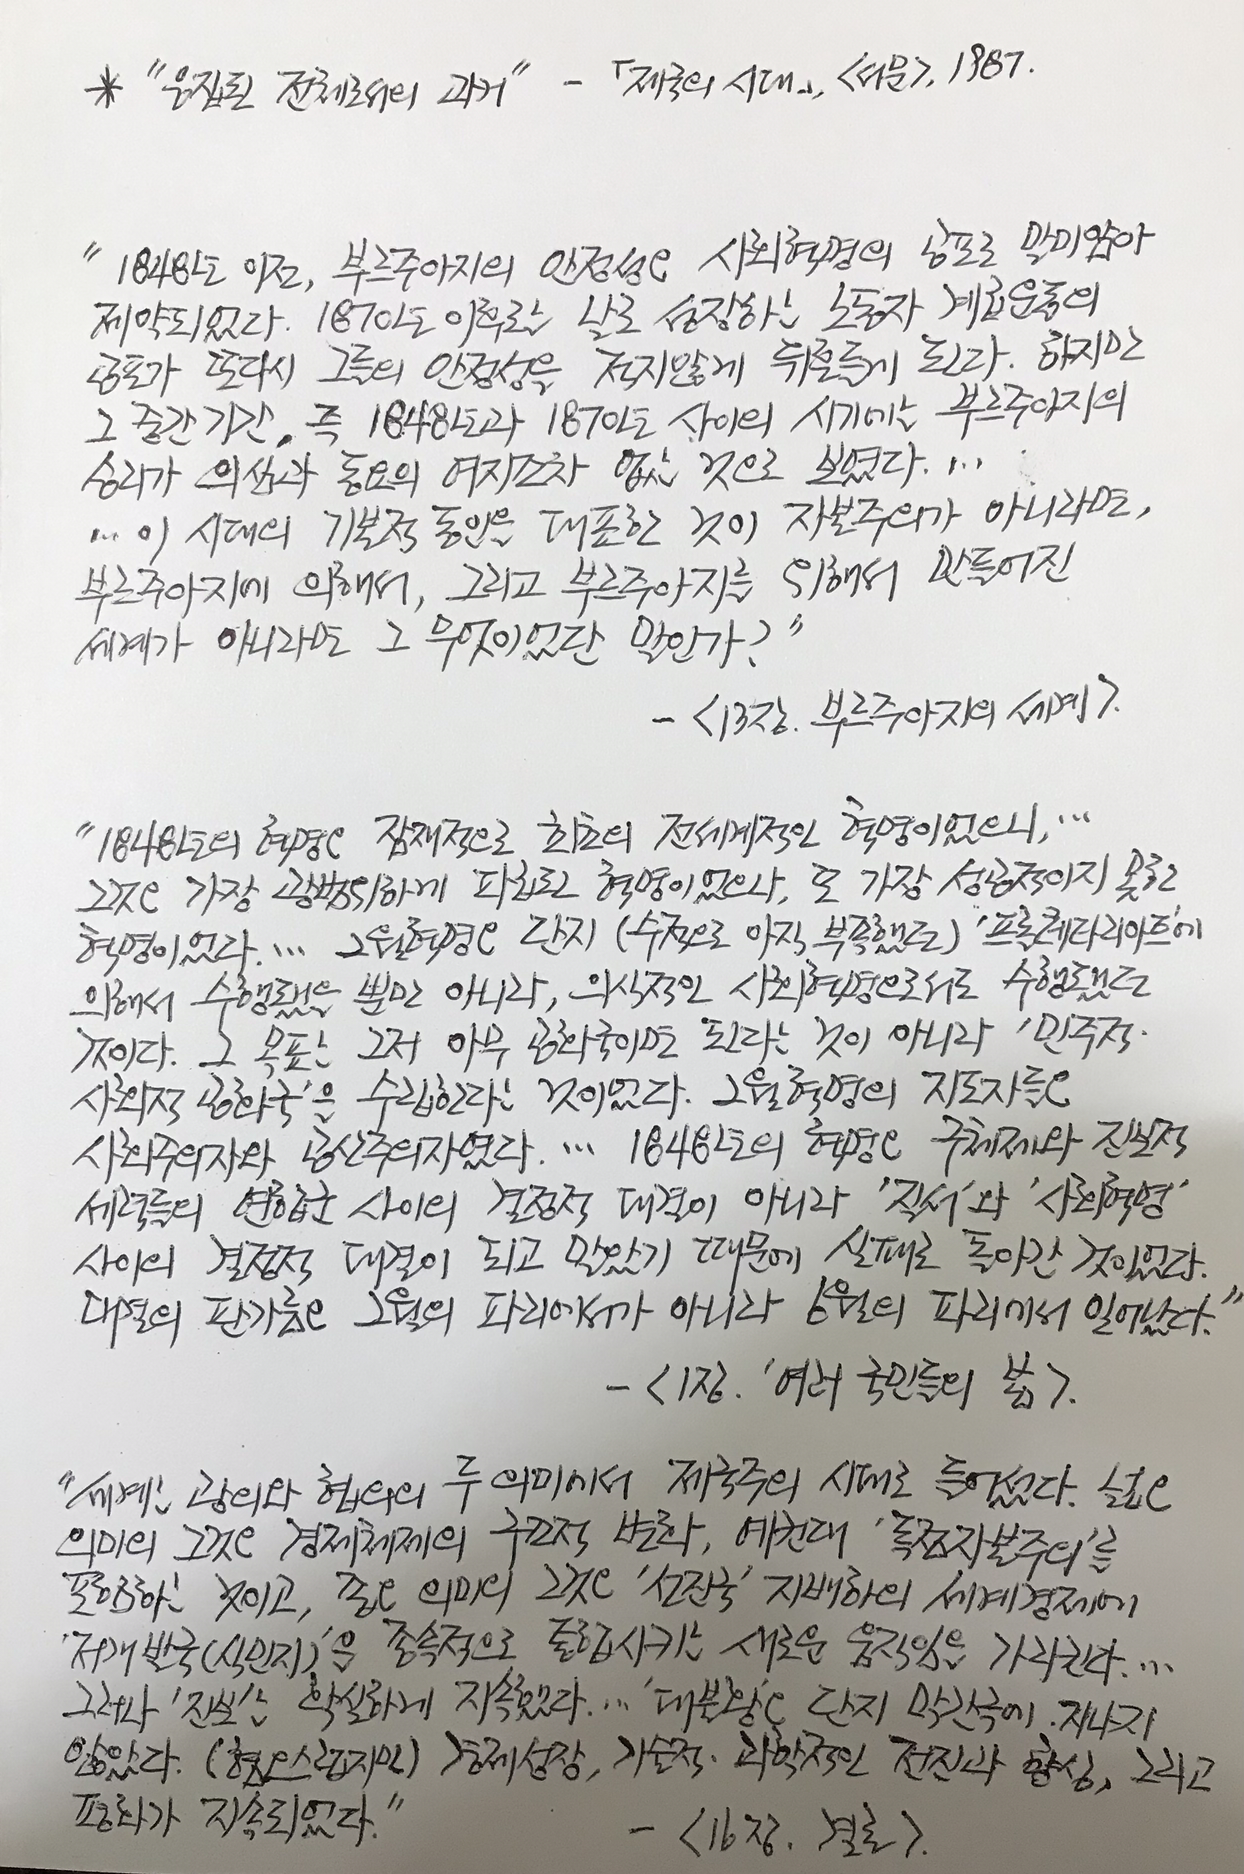 * "응집된 전체로서의 과거" - 「제국의 시대」, <서문>, 1987.
" 1848년 이전, 부르주아지의 안정성은 사회혁명의 공포로 말미암아
제약되었다. 1870년 이후로는 날로 성장하는 노동자 계급운동의
공포가 또다시 그들의 안정성을 적지않게 뒤흔들게 된다. 하지만
그 중간기간, 즉 1848년과 1870년 사이의 시기에는 부르주아지의
승리가 의심과 동요의 여지조차 없는 것으로 보였다. …
… 이 시대의 기본적 동인을 대표한 것이 자본주의가 아니라면,
부르주아지에 의해서, 그리고 부르주아지를 위해서 만들어진
세계가 아니라면 그 무엇이었단 말인가?"
- <13장. 부르주아지의 세계>.
"1848년의 혁명은 잠재적으로 최초의 전세계적인 혁명이었으니, …
그것은 가장 광범위하게 파급된 혁명이었으나, 또 가장 성공적이지 못한
혁명이었다. … 2월혁명은 단지 (수적으로 아직 부족했던) '프롤레타리아트'에
의해서 수행됐을 뿐만 아니라, 의식적인 사회혁명으로서도 수행됐던
것이다. 그 목표는 그저 아무 공화국이면 된다는 것이 아니라 '민주적·
사회적 공화국'을 수립한다는 것이었다. 2월혁명의 지도자들은
사회주의자와 공산주의자였다. … 1848년의 혁명은 구체제와 진보적
세력들의 연합군 사이의 결정적 대결이 아니라 '질서'와 '사회혁명'
사이의 결정적 대결이 되고 말았기 때문에 실패로 돌아간 것이었다.
대결의 판가름은 2월의 파리에서가 아니라 6월의 파리에서 일어났다."
- <1장. '여러 국민들의 봄>.
"세계는 광의와 협의의 두 의미에서 제국주의 시대로 들어섰다. 넓은
의미의 그것은 경제체제의 구조적 변화, 예컨대 '독점자본주의'를
포함하는 것이고, 좁은 의미의 그것은 '선진국' 지배하의 세계경제에
'저개발국(식민지)'을 종속적으로 돌입시키는 새로운 움직임을 가리킨다. …
그러나 '진보'는 확실하게 지속됐다. … '대불황'은 단지 막간극에 지나지
않았다. (혐오스럽지만) 경제성장, 기술적·과학적인 전진과 향상, 그리고
평화가 지속되었다."
- <16장. 결론>.